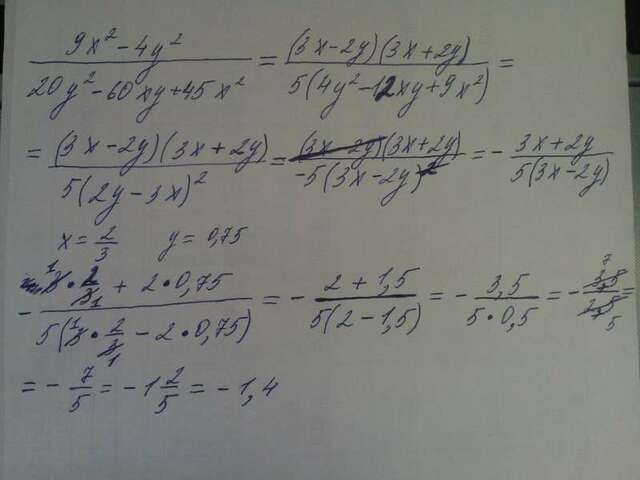 (9x² - 4y²)/(20y² - 60xy + 45x²) = ((3x - 2y)(3x + 2y))/(5(4y² - 12xy + 9x²)) =
= ((3x - 2y)(3x + 2y))/(5(2y - 3x)²) = ((3x - 2y)(3x + 2y))/(-5(3x - 2y)²) = - (3x + 2y)/(5(3x - 2y))
x = 2/3 y = 0,75
- (3 · 2/3 + 2 · 0,75)/(5(3 · 2/3 - 2 · 0,75)) = - (2 + 1,5)/(5(2 - 1,5)) = - (3,5)/(5 · 0,5) = - 7/5 =
= - 7/5 = - 1 2/5 = - 1,4